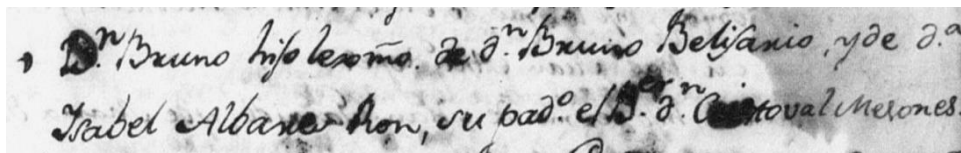 D.n Bruno hijo lexmo. de d.n Bruno Belisario, y de d.a
Isabel Albarez Ron, su pad.o el B.er d.n Cristoval Mesones.